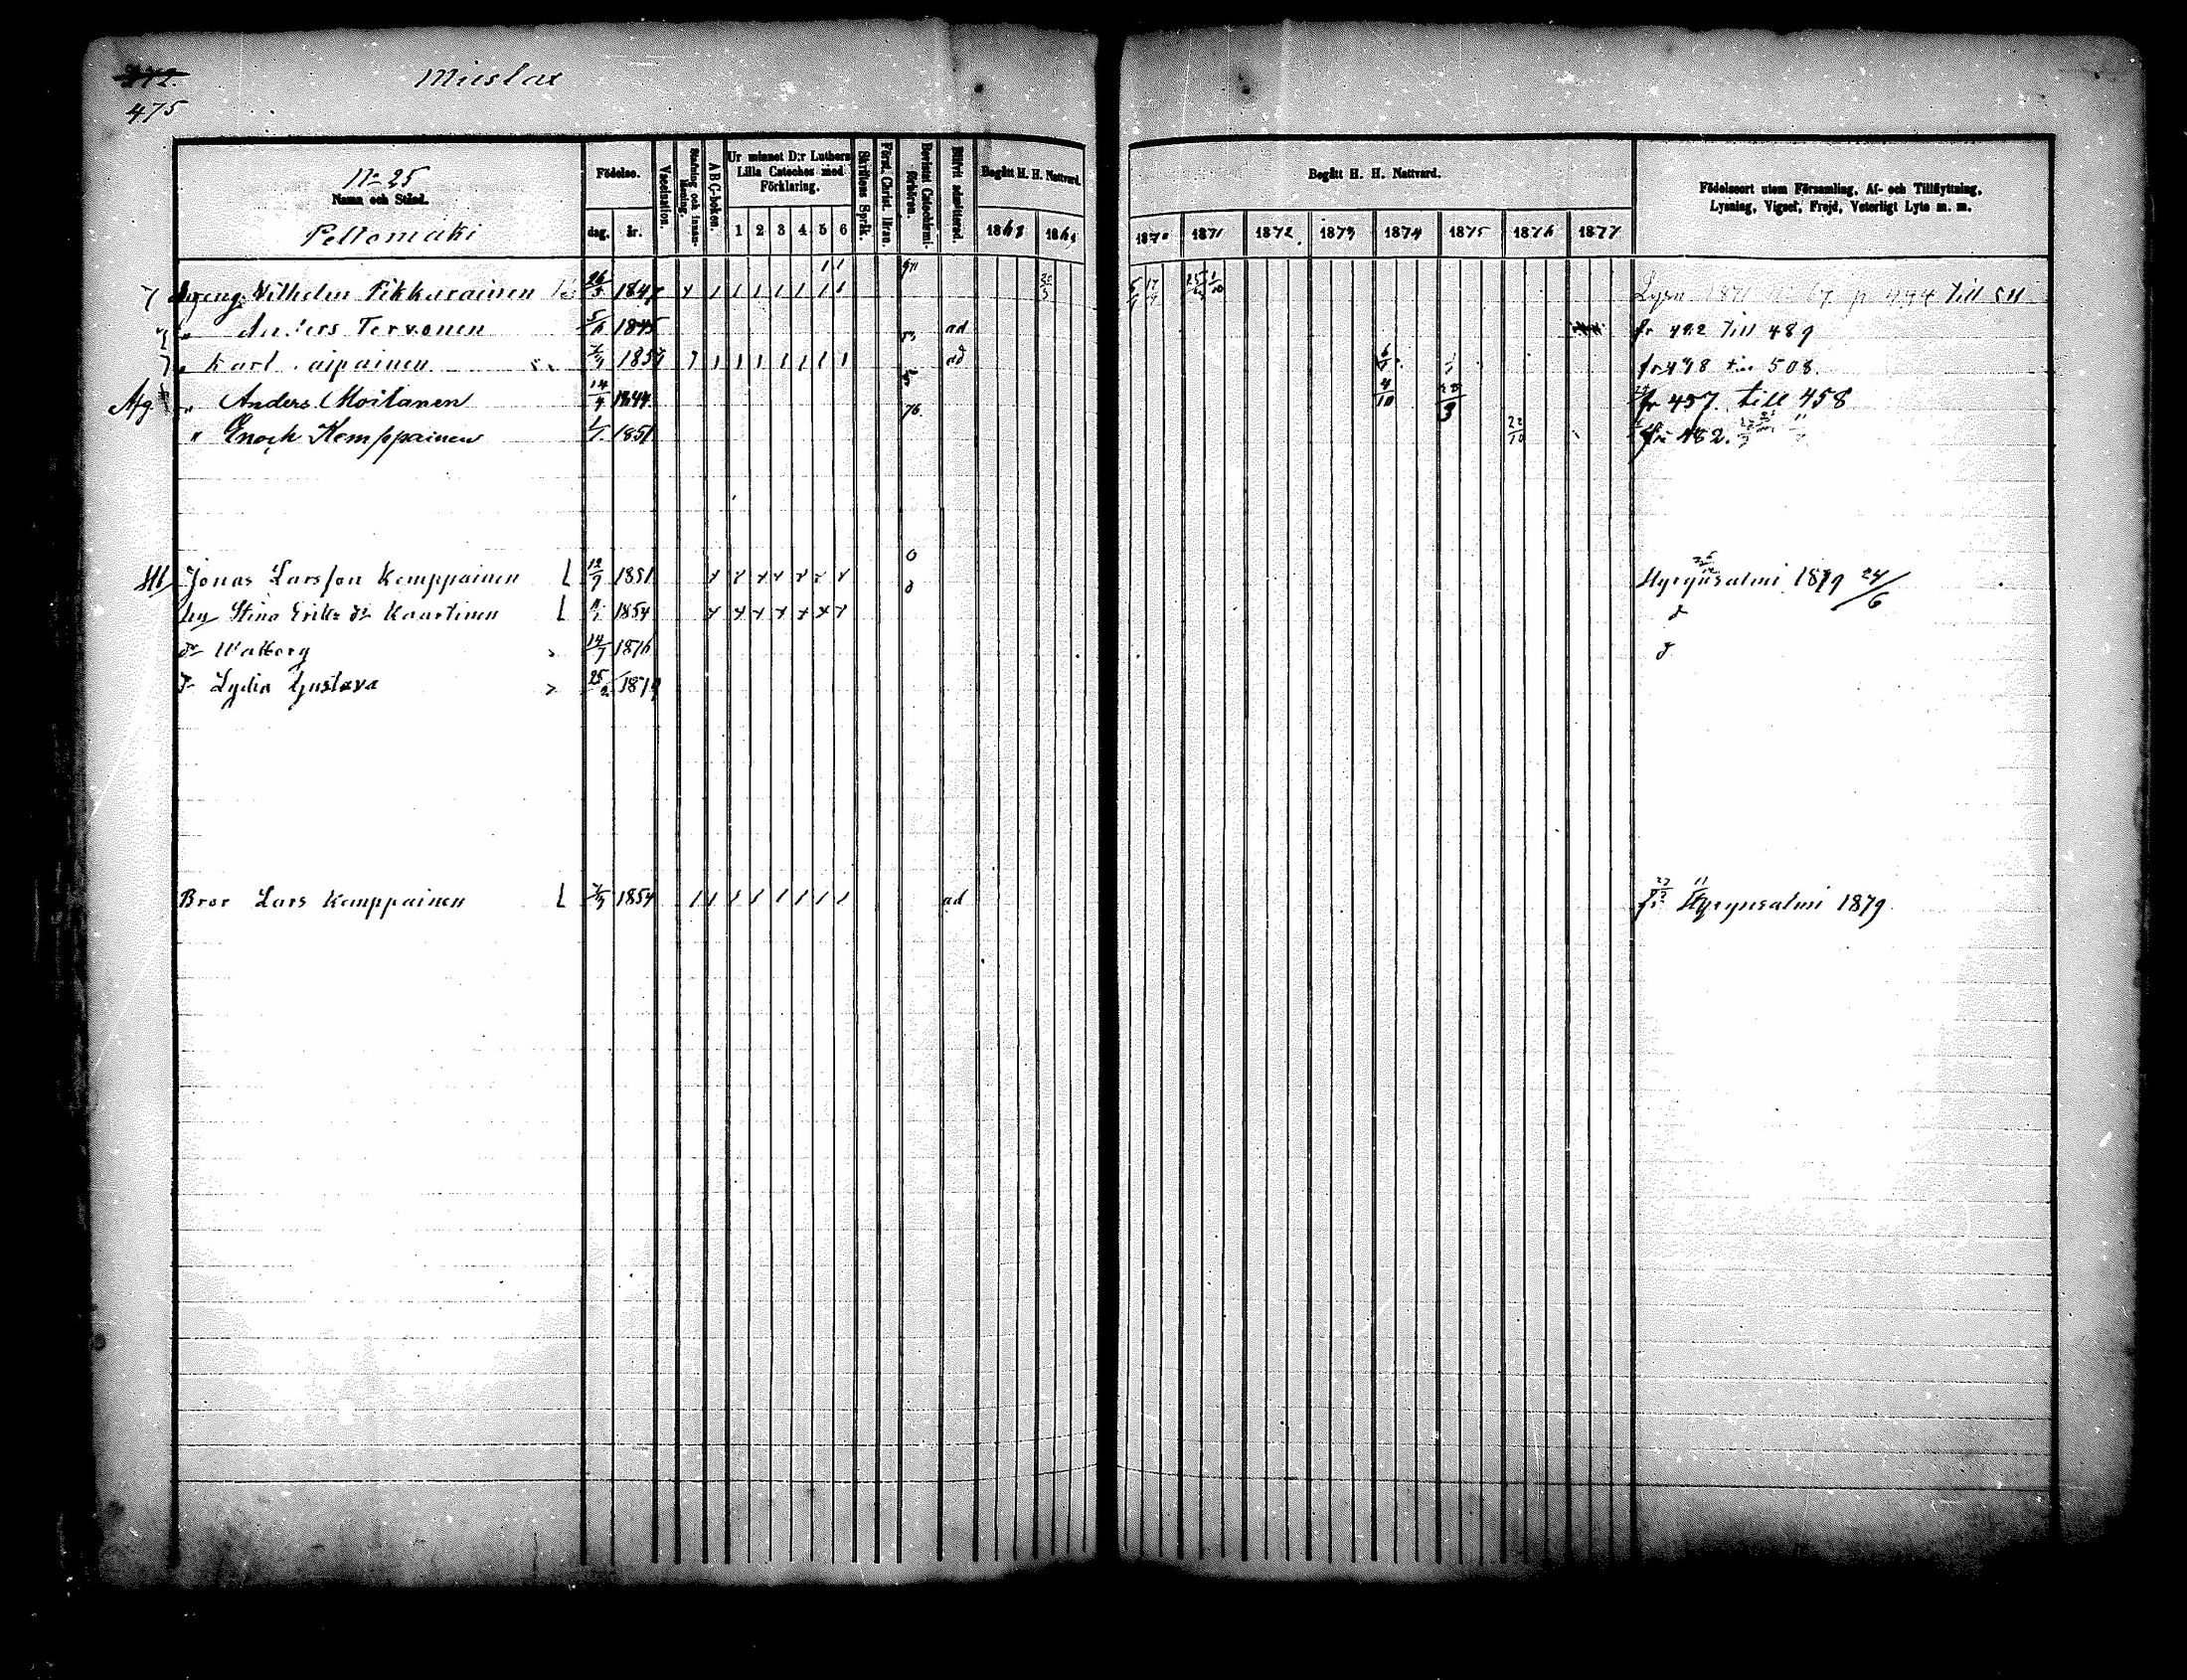 475
Mieslax
No 25
Namn och Stånd.
Peltomäki
Födelse.
dag. år.
Vaccination.
Stafning och innanläsning.
A B C-boken.
Ur minnet D:r Luthers Lilla Cateches med Förklaring.
1 2 3 4 5 6
Skriftens Språk.
Först. Christ. läran.
Bevistat Catechismiförhören.
Blifvit admitterad.
Begått H. H. Nattvard.
1868 1869
Begått H. H. Nattvard.
1870 1871 1872 1873 1874 1875 1876 1877
Födelseort utom Församling, Af- och Tillflyttning,
Lysning, Vigsel, Frejd, Veterligt Lyte m. m.
Dreng Vilhelm Pikkarainen 26/5 1847 Lysn 1871 p 494 till 511
" Anders Tervonen 1845 ad fr 492 till 489
" Karl 1857 ad fr 498 508
Afg. " Anders Moilanen 14/4 1844 4/10 fr 457. till 458
" Enoch Kemppainen 1/1 1851 76. 22/10 fr 482.
Jonas Larsson Kemppainen L 12/7 1851 Hyrynsalmi 1879 24/6
hu Stina Eriks dr Kaartinen L 1854 d
dr Walborg 14/7 1876 d
dr Lydia Gustava 25/2 1879
Bror Lars Kemppainen L 1854 ad fr Hyrynsalmi 1879